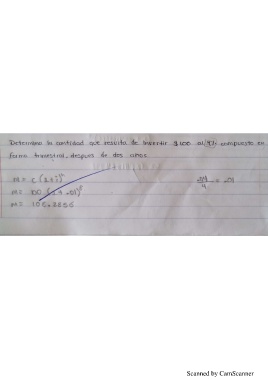 Determina la cantidad que resulta de invertir $100 al 4% compuesto en
forma trimestral, despues de dos años
m = c (1+i)ⁿ
.04/4 = .01
m = 100 (1+.01)⁸
m = 108.2856
Scanned by CamScanner